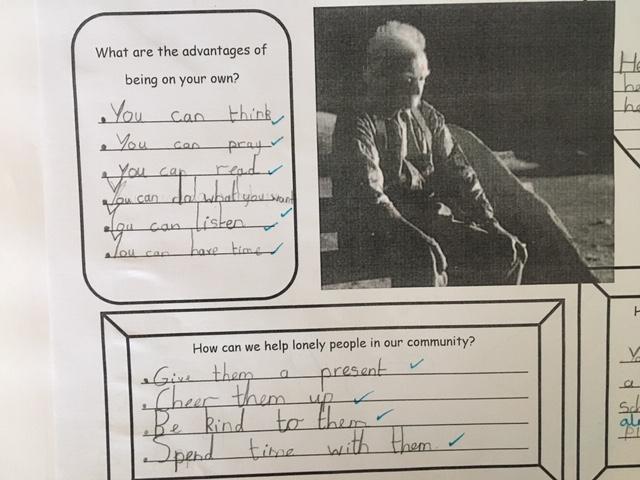 What are the advantages of
being on your own?
• You can think
• You can pray
• You can read
You can do what you want
• You can listen
• You can have time
How can we help lonely people in our community?
• Give them a present
• Cheer them up
• Be kind to them
• Spend time with them
He
he
ha
H
a